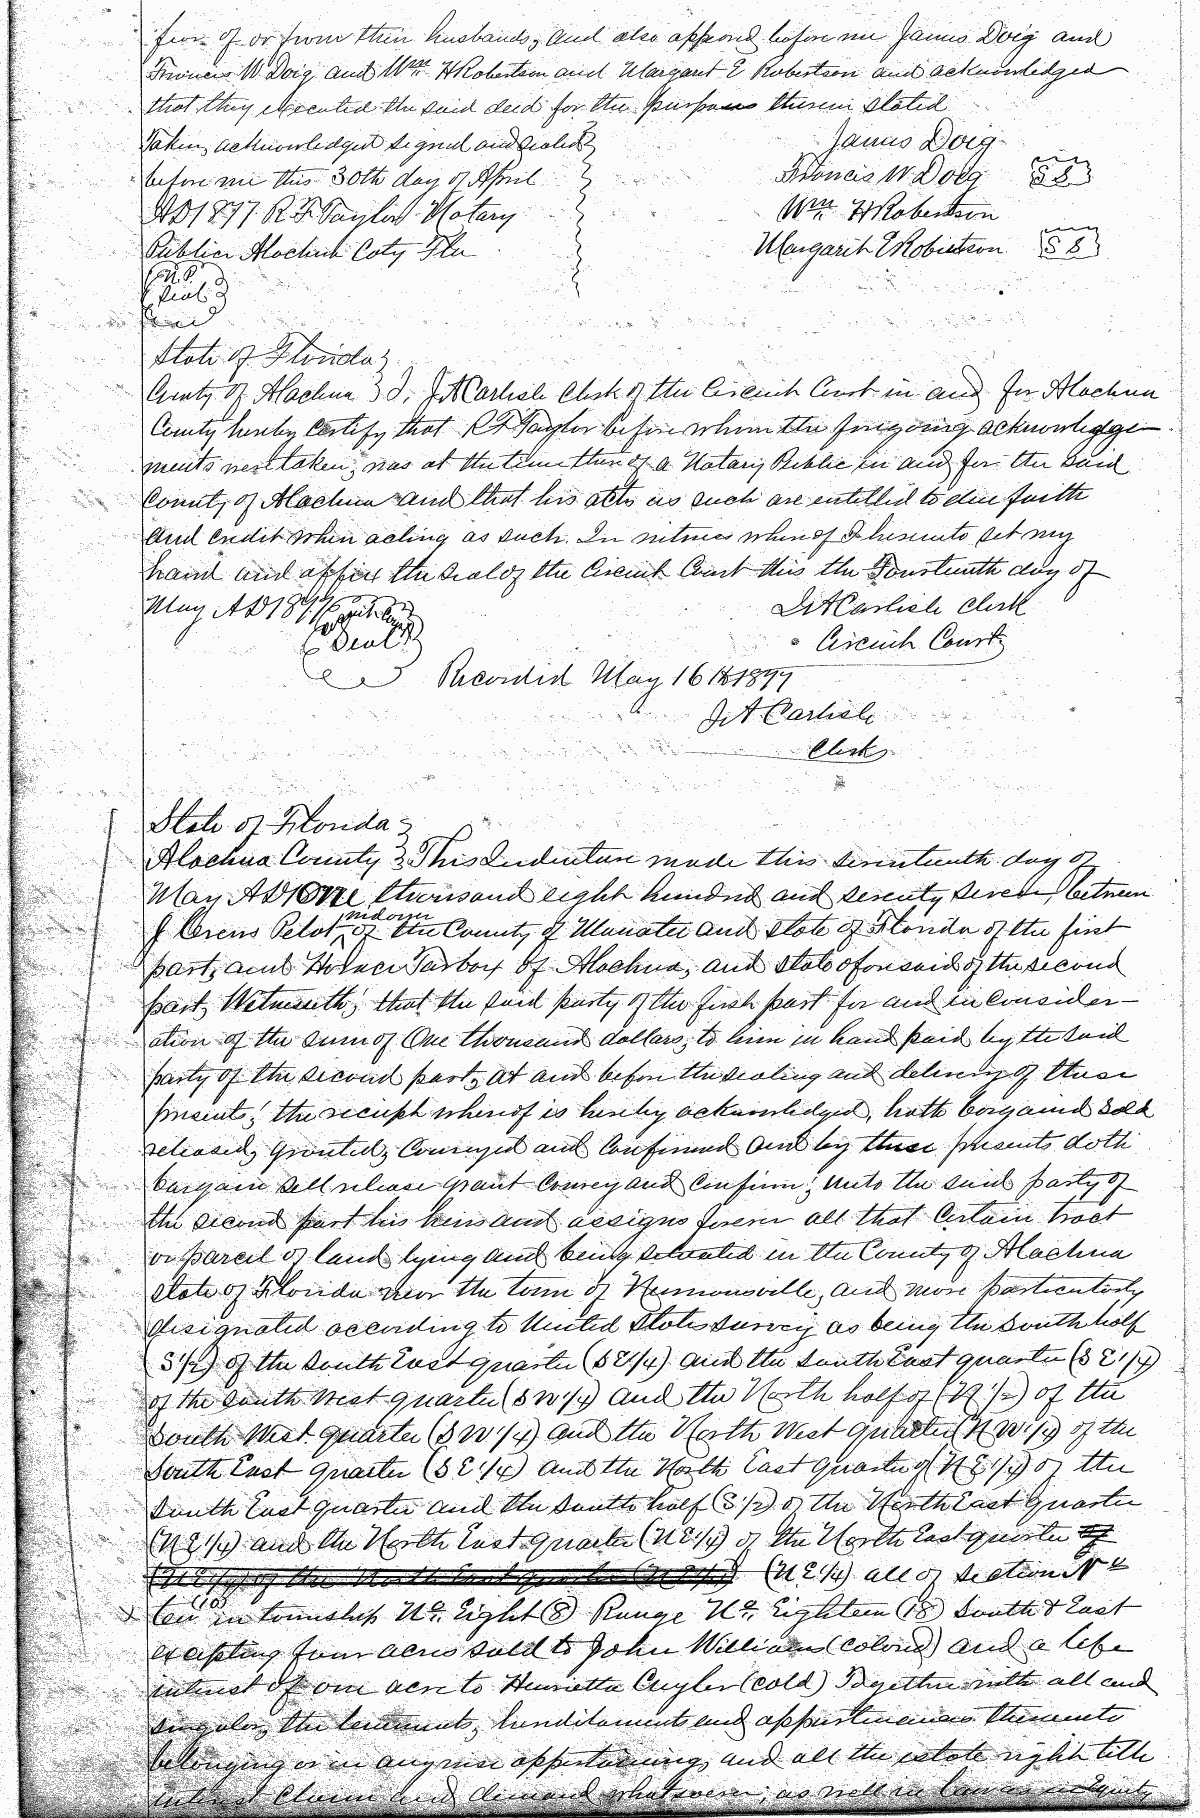 fear of or from their husbands, and also appeared before me James Doig and
Francis W Doig and Wm H Robertson and Margaret E Robertson and acknowledged
that they executed the said deed for the purposes therein stated
Taken, acknowledged signed and sealed
before me this 30th day of April
AD 1877 R F Taylor Notary
Public Alachua Coty Fla
N.P.
Seal
James Doig
Francis W Doig SS
Wm H Robertson
Margarit E Robertson SS
State of Florida
County of Alachua I, J A Carlisle Clerk of the Circuit Court in and for Alachua
County hereby certify that R F Taylor before whom the foregoing acknowledge-
ments were taken, was at the time thereof a Notary Public in and for the said
County of Alachua and that his acts as such are entitled to due faith
and credit when acting as such. In witness whereof I hereunto set my
hand and affix the seal of the Circuit Court this the Fourteenth day of
May AD 1877
Circuit Court
Seal
J A Carlisle Clerk
Circuit Court
Recorded May 16th 1877
J A Carlisle
Clerk
State of Florida
Alachua County This Indenture made this seventeenth day of
May AD One thousand eight hundred and seventy seven, between
J Crews Pelot, widower of the County of Manatee and state of Florida of the first
part, and Horace Tarbox of Alachua, and state aforesaid of the second
part, Witnesseth, that the said party of the first part for and in consider-
ation of the sum of One thousand dollars, to him in hand paid by the said
party of the second part, at and before the sealing and delivery of these
presents, the receipt whereof is hereby acknowledged, hath bargained sold
released, granted, conveyed and confirmed and by these presents doth
bargain sell release grant convey and confirm, unto the said party of
the second part his heirs and assigns forever all that certain tract
or parcel of land lying and being situated in the County of Alachua
state of Florida near the town of Newnansville, and more particularly
designated according to United States survey as being the South half
(S 1/2) of the South East quarter (S E 1/4) and the South East quarter (S E 1/4)
of the South West quarter (S W 1/4) and the North half of (N 1/2) of the
South West quarter (S W 1/4) and the North West quarter (N W 1/4) of the
South East quarter (S E 1/4) and the North East quarter of (N E 1/4) of the
South East quarter and the South half (S 1/2) of the North East quarter
(N E 1/4) and the North East quarter (N E 1/4) of the North East quarter of
(N E 1/4) of the North East quarter (N E 1/4) (N E 1/4) all of section No
ten (10) in township No. Eight (8) Range No. Eighteen (18) South & East
excepting four acres sold to John Williams (colored) and a life
interest of one acre to Henrietta Cuyler (cold) Together with all and
singular, the tenements, hereditaments and appurtenances thereunto
belonging or in anywise appertaining, and all the estate right title
interest claim and demand whatsoever, as well in law as in Equity